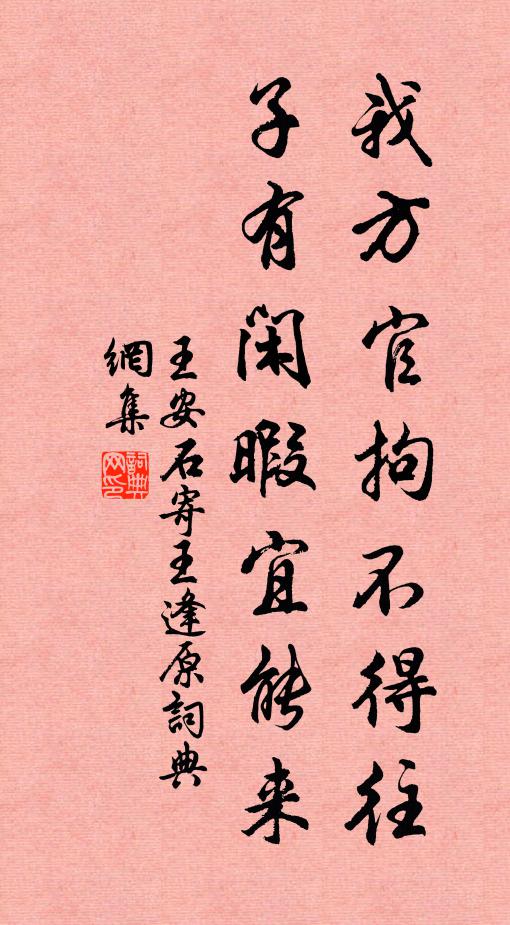 我方官拘不得往
子有闲暇宜能来
王安石寄王逢原詞典
網集
詞典網印